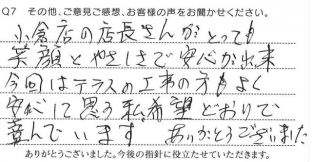 Q7 その他、ご意見ご感想、お客様の声をお聞かせください。
小倉店の店長さんがとっても
笑顔とやさしさで安心が出来
今回はテラスの工事の方もよく
安心して思う私希望どおりで
喜んでいます ありがとうございました
ありがとうございました。今後の指針に役立たせていただきます。